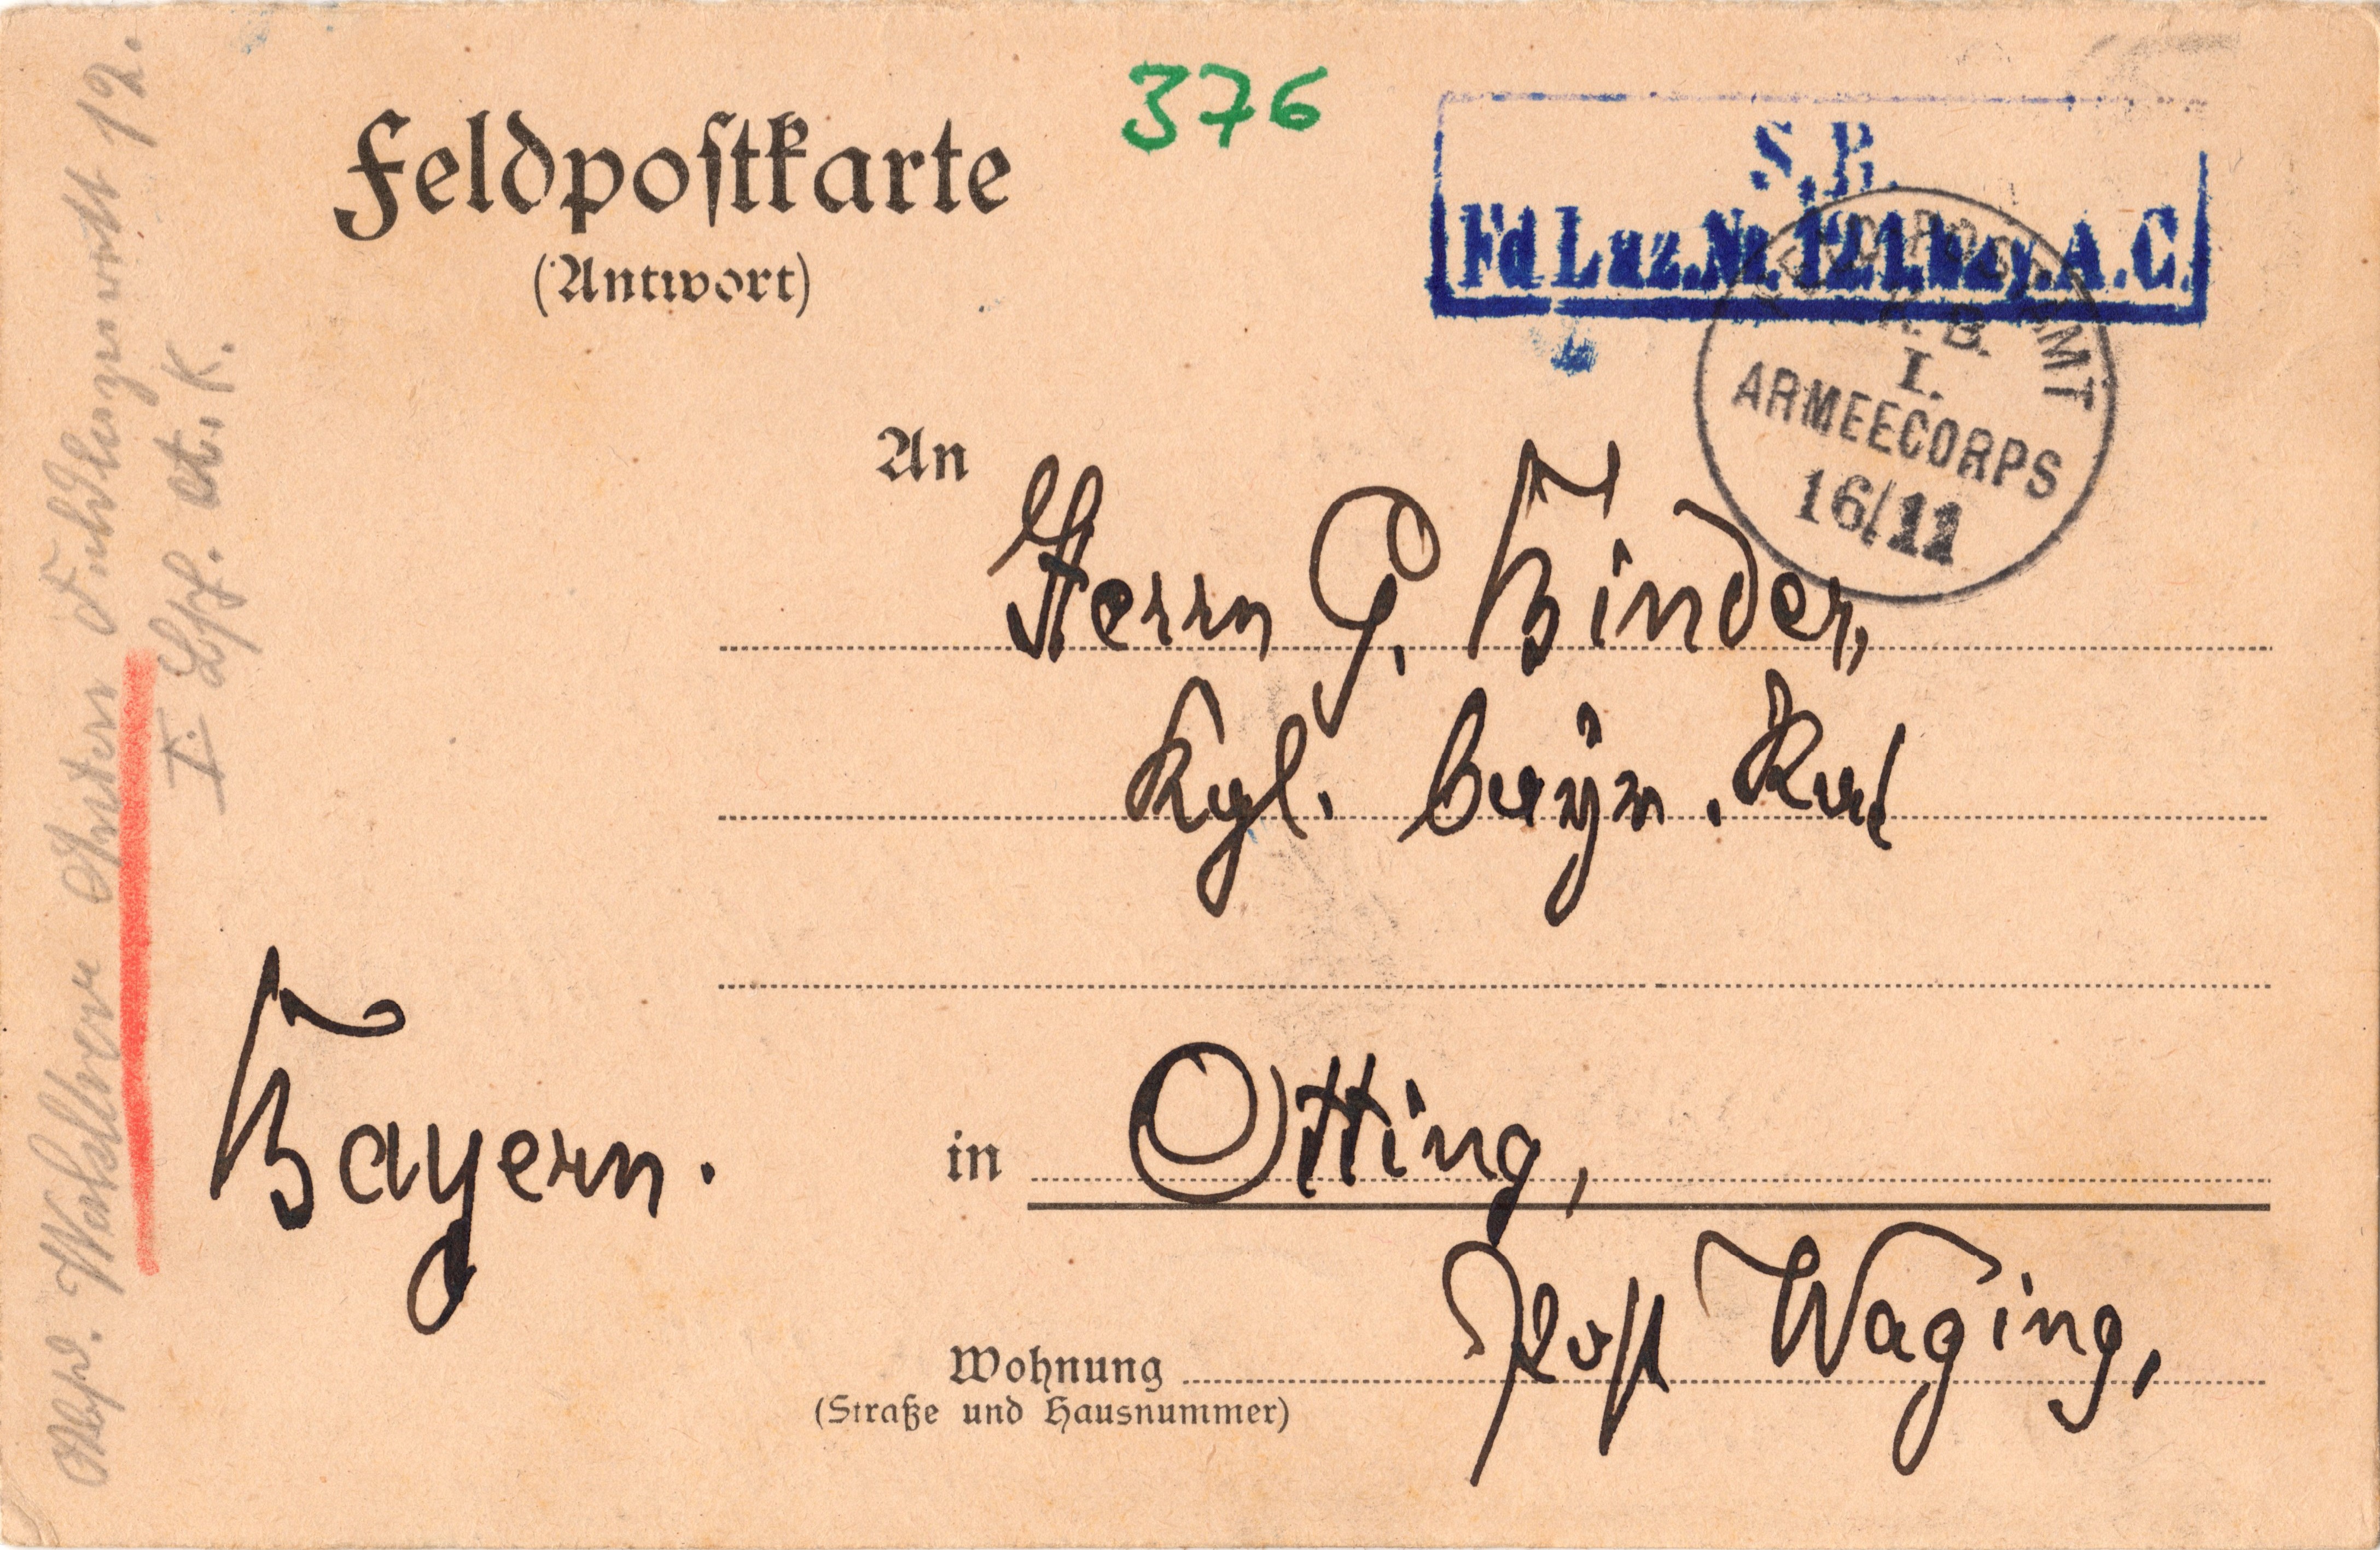 376
Feldpostkarte
(Antwort)
S.B.
Fd Laz. Nr. 12 I. bay. A.C.
FELDPOSTAMT
K. B.
I.
ARMEECORPS
16/11
An
Herrn G. Binder,
Kgl. bayr.
Bayern.
in Otting,
Post Waging,
Wohnung
(Straße und Hausnummer)
Abs. Feldlazarett 12.
I. A. K.